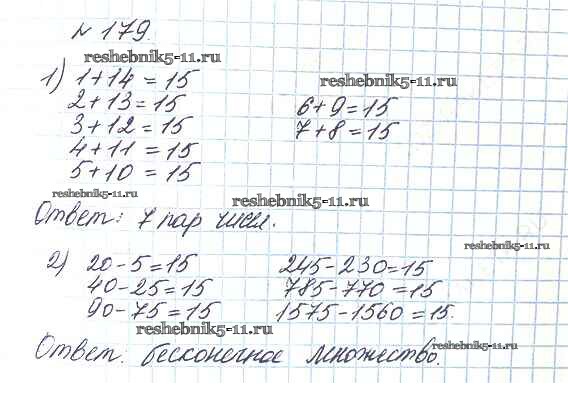 № 179.
reshebnik5-11.ru
1) 1+14=15
reshebnik5-11.ru
2+13=15
6+9=15
3+12=15
7+8=15
4+11=15
5+10=15
reshebnik5-11.ru
reshebnik5-11.ru
Ответ: 7 пар чисел.
reshebnik5-11.ru
2) 20-5=15
245-230=15
40-25=15
785-770=15
90-75=15
1575-1560=15.
reshebnik5-11.ru
reshebnik5-11.ru
Ответ: бесконечное множество.